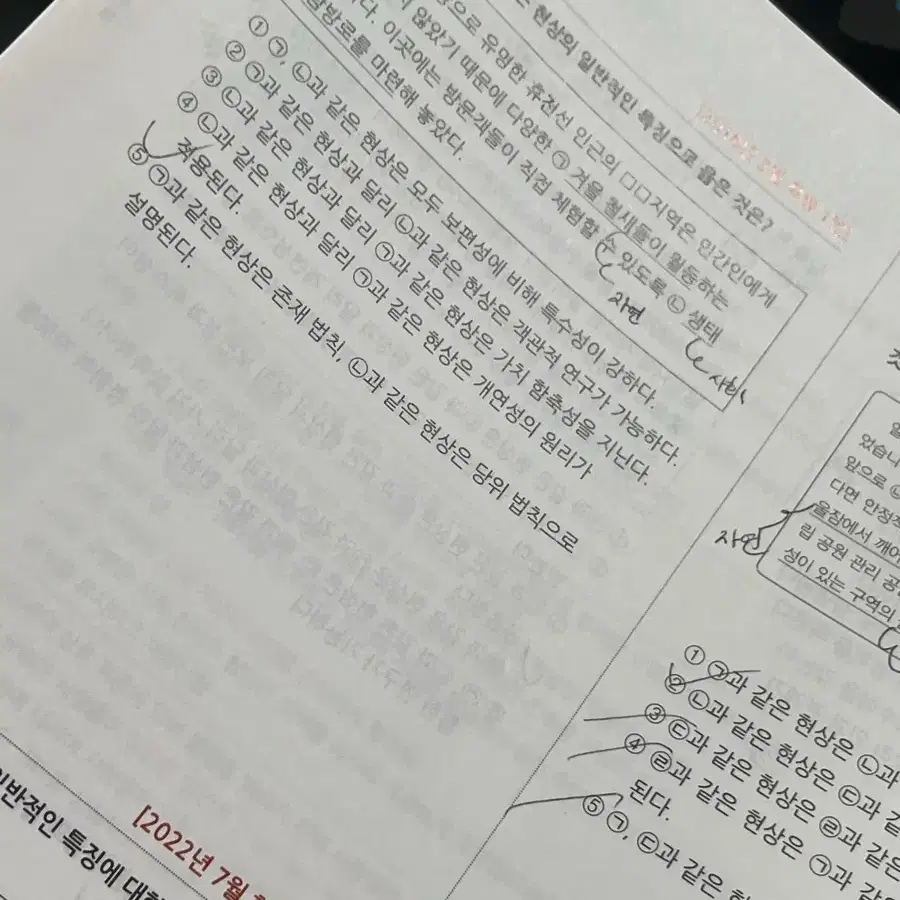 현상의 일반적인 특징으로 옳은 것은?
으로 유명한 휴전선 인근의 □□지역은 민간인에게
않았기 때문에 다양한 ㉠ 겨울 철새들이 활동하는
다. 이곳에는 방문객들이 직접 체험할 수 있도록 ㉡ 생태
탐방로를 마련해 놓았다.
자연
① ㉠, ㉡과 같은 현상은 모두 보편성에 비해 특수성이 강하다.
② ㉠과 같은 현상과 달리 ㉡과 같은 현상은 객관적 연구가 가능하다.
③ ㉡과 같은 현상과 달리 ㉠과 같은 현상은 가치 함축성을 지닌다.
④ ㉡과 같은 현상과 달리 ㉠과 같은 현상은 개연성의 원리가
적용된다.
⑤ ㉠과 같은 현상은 존재 법칙, ㉡과 같은 현상은 당위 법칙으로
설명된다.
[2022년 7월
일반적인 특징에 대한
었습니
앞으로
다면 안정적
울잠에서 깨어
립 공원 관리 공
성이 있는 구역의
자연
① ㉠과 같은 현상은 ㉡과
② ㉡과 같은 현상은 ㉢과
③ ㉢과 같은 현상은 ㉣과 같은
④ ㉣과 같은 현상은 ㉠과 같
된다.
⑤ ㉠, ㉢과 같은